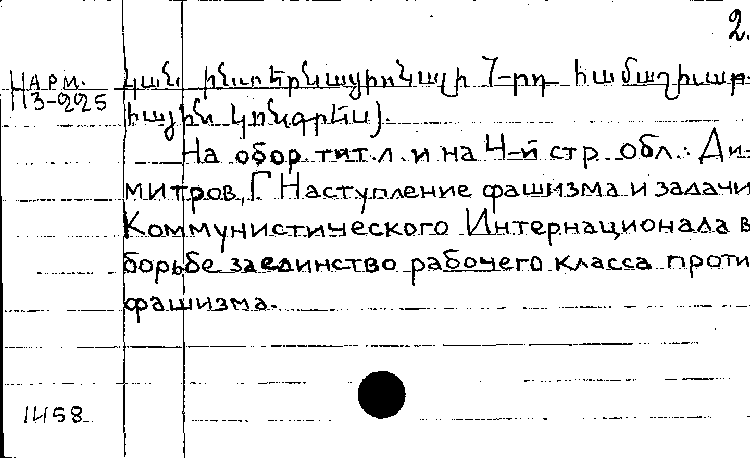 2.
НАРМ.
П3-225
կան ինտերնացիոնալի 7-րդ համաշխար-
հային կոնգրես).
На обор. тит. л. и на 4-й стр. обл.: Ди-
митров, Г. Наступление фашизма и задачи
Коммунистического Интернационала в
борьбе за единство рабочего класса проти
фашизма.
1458